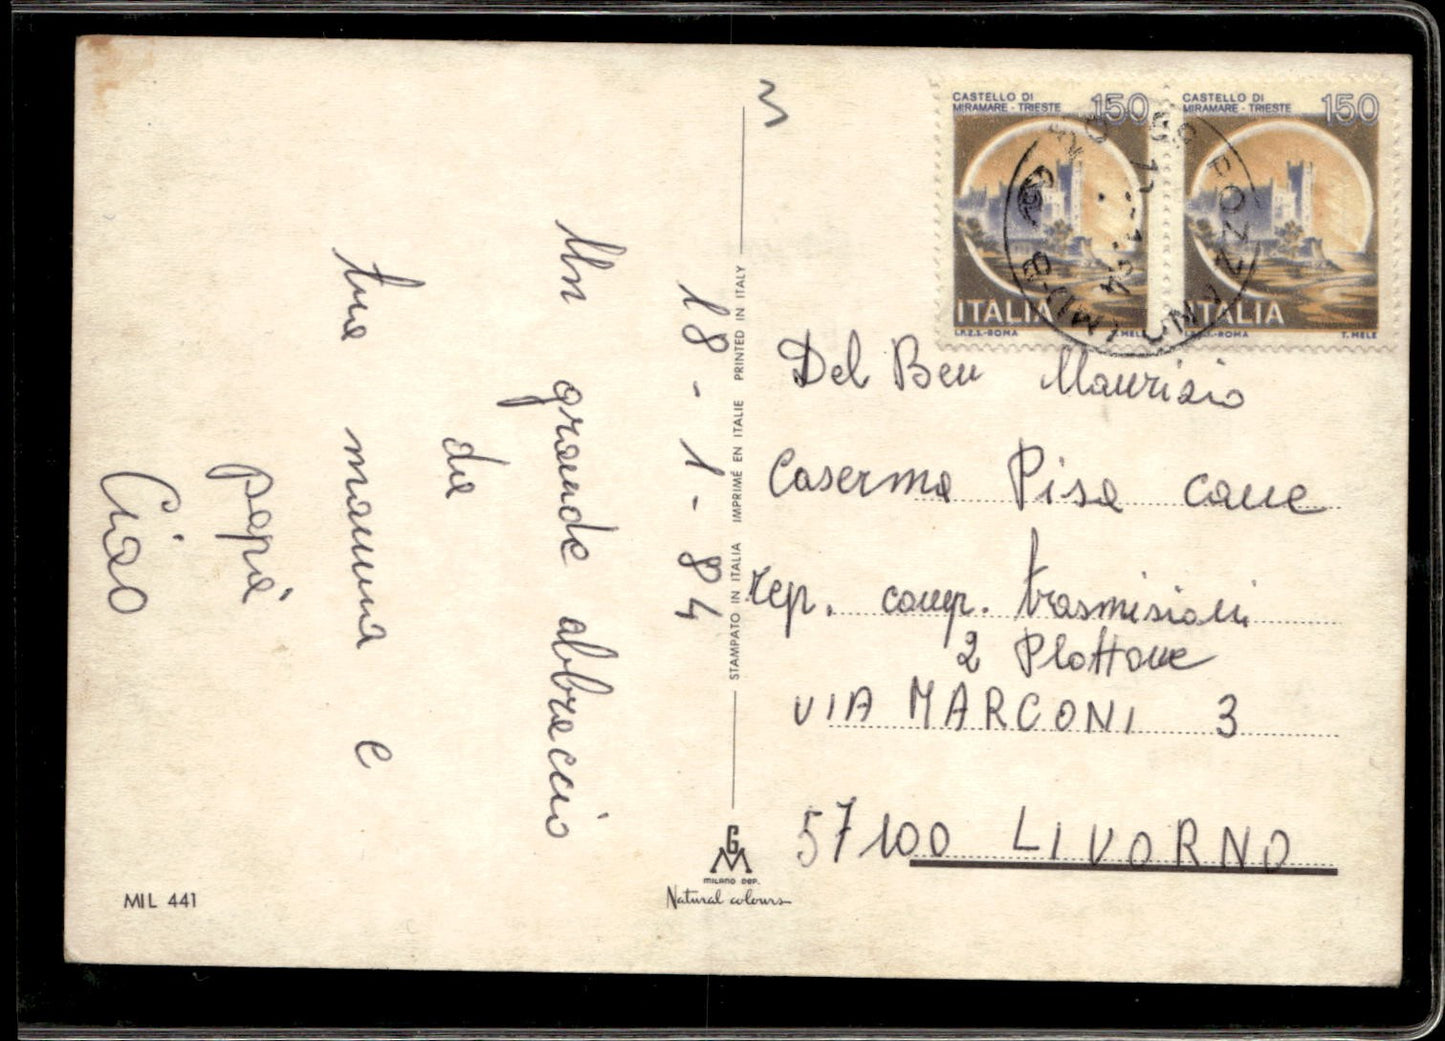 18-1-84
Un grande abbraccio
da
tua mamma e
papà
Ciao
MIL 441
STAMPATO IN ITALIA IMPRIMÉ EN ITALIE PRINTED IN ITALY
GM
MILANO DEP.
Natural colours
3
CASTELLO DI
MIRAMARE - TRIESTE 150
ITALIA
I.P.Z.S.-ROMA T. MELE
CASTELLO DI
MIRAMARE - TRIESTE 150
ITALIA
I.P.Z.S.-ROMA T. MELE
Del Ben Maurizio
Caserma Pisa cane
rep. comp. trasmisioni
2 Plottone
VIA MARCONI 3
57100 LIVORNO